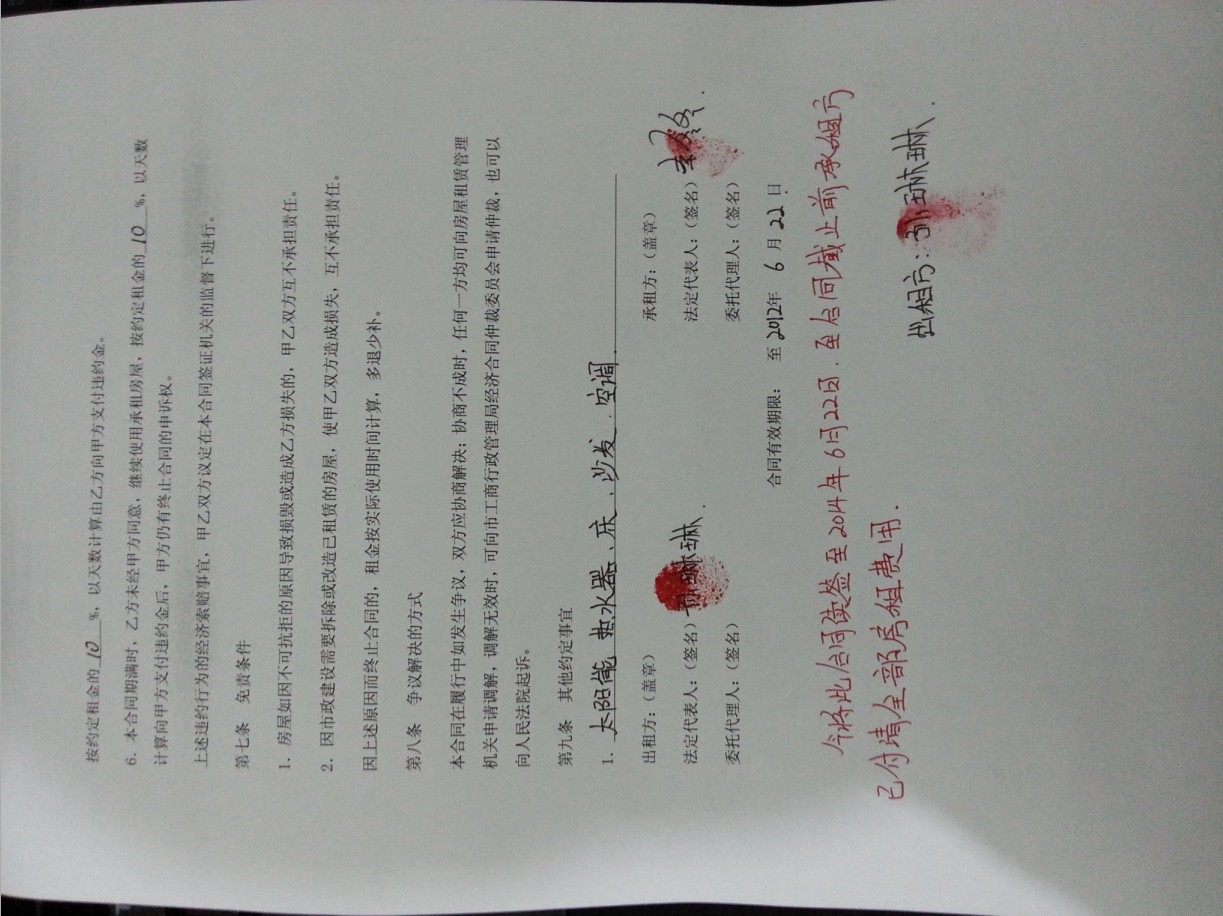 按约定租金的 10 %，以天数计算由乙方向甲方支付违约金。
6．本合同期满时，乙方未经甲方同意，继续使用承租房屋，按约定租金的 10 %，以天数
计算向甲方支付违约金后，甲方仍有终止合同的申诉权。
上述违约行为的经济索赔事宜，甲乙双方议定在本合同签证机关的监督下进行。
第七条 免责条件
1．房屋如因不可抗拒的原因导致损毁或造成乙方损失的，甲乙双方互不承担责任。
2．因市政建设需要拆除或改造已租赁的房屋，使甲乙双方造成损失，互不承担责任。
因上述原因而终止合同的，租金按实际使用时间计算，多退少补。
第八条 争议解决的方式
本合同在履行中如发生争议，双方应协商解决；协商不成时，任何一方均可向房屋租赁管理
机关申请调解，调解无效时，可向市工商行政管理局经济合同仲裁委员会申请仲裁，也可以
向人民法院起诉。
第九条 其他约定事宜
1．太阳能 热水器、床、沙发．空调．
出租方：（盖章） 承租方：（盖章）
法定代表人：（签名）孙琳琳． 法定代表人：（签名）
委托代理人：（签名） 委托代理人：（签名）
合同有效期限： 至 2012年 6 月 22 日
今将此合同续签至2014年6月22日．至合同截止前承租方
已付清全部房租费用．
出租方：孙琳琳．